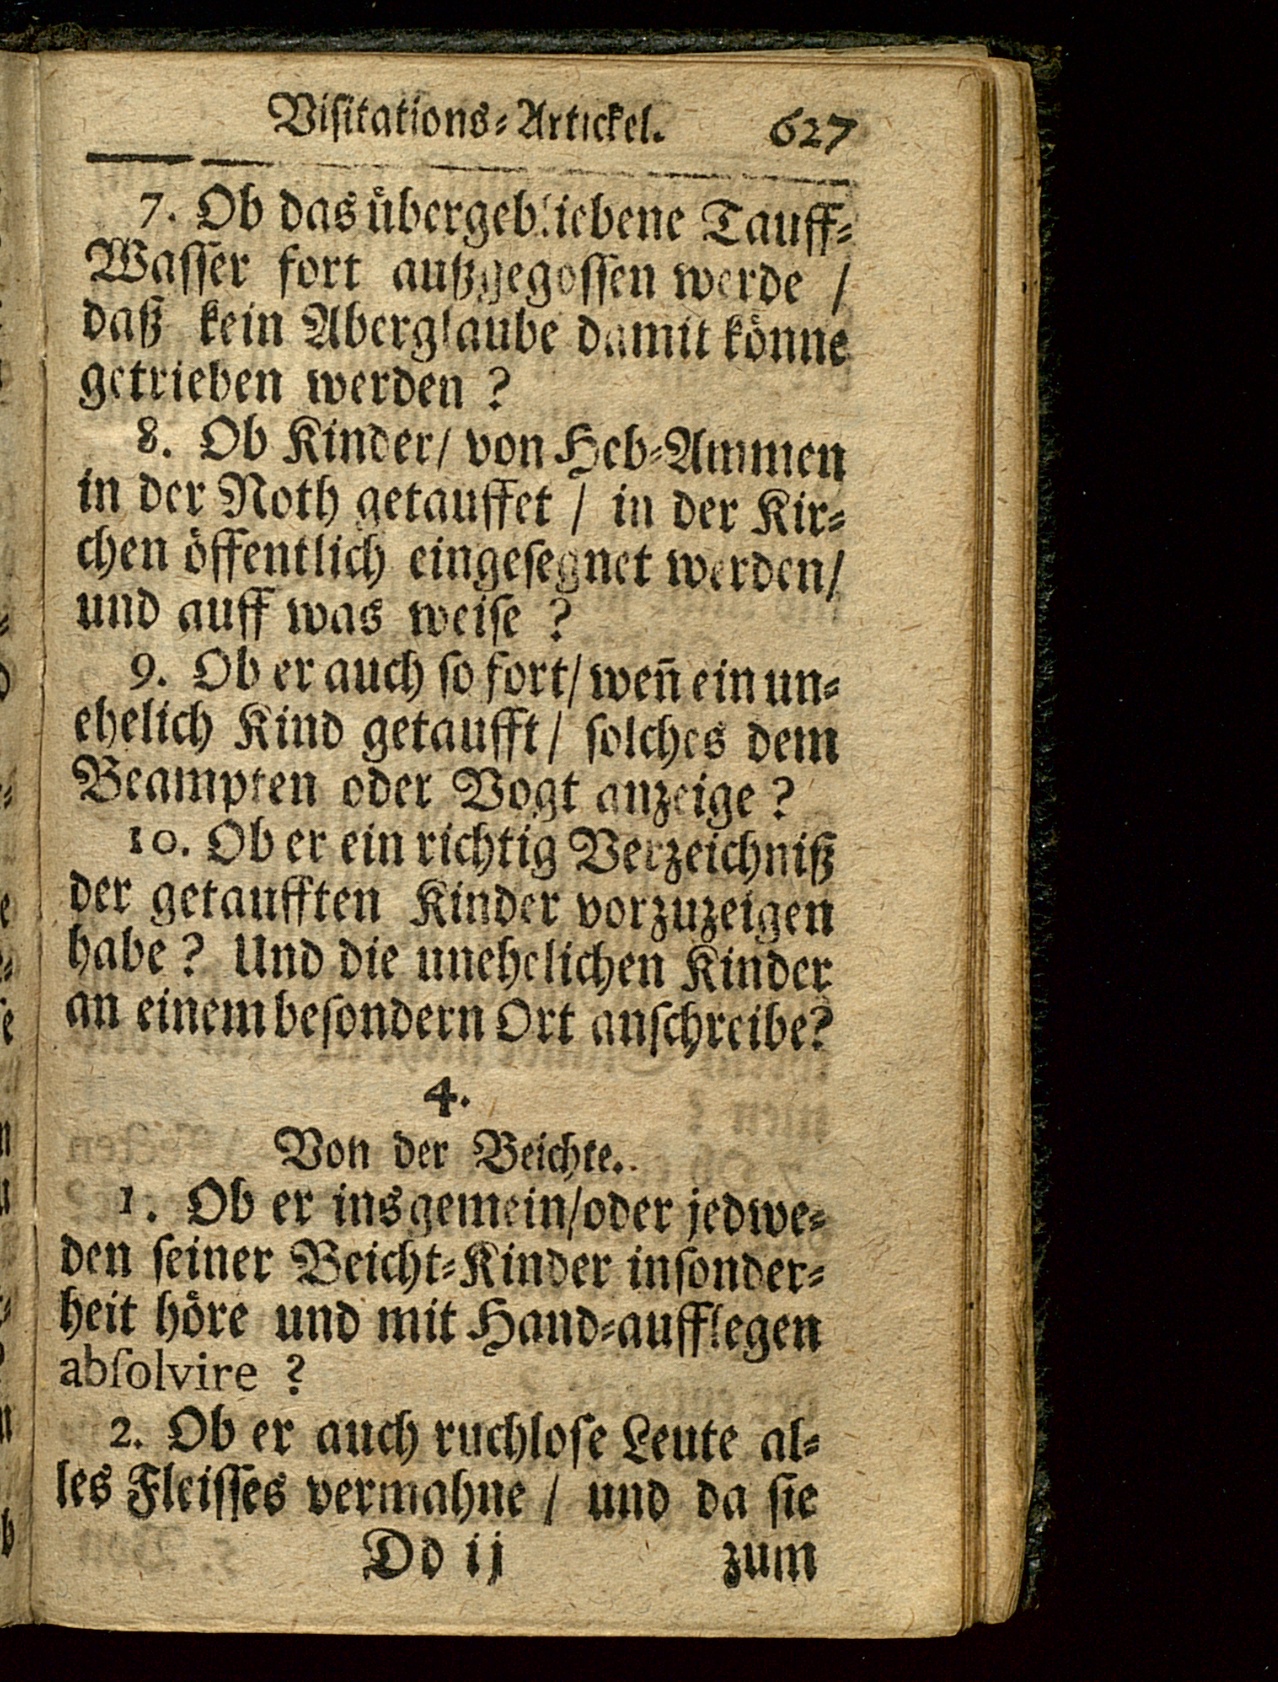 Viſitations-Artickel. 627
7. Ob das uͤbergebliebene Tauff-
Waſſer fort außgegoſſen werde /
daß kein Aberglaube damit koͤnne
getrieben werden ?
8. Ob Kinder/ von Heb-Ammen
in der Noth getauffet / in der Kir-
chen oͤffentlich eingeſegnet werden/
und auff was weiſe ?
9. Ob er auch ſo fort/ wen̄ ein un-
ehelich Kind getaufft / ſolches dem
Beampten oder Vogt anzeige ?
10. Ob er ein richtig Verzeichniß
der getaufften Kinder vorzuzeigen
habe ? Und die unehelichen Kinder
an einem beſondern Ort anſchreibe?
4.
Von der Beichte.
1. Ob er ins gemein/oder jedwe-
den ſeiner Beicht-Kinder inſonder-
heit hoͤre und mit Hand-aufflegen
abſolvire ?
2. Ob er auch ruchloſe Leute al-
les Fleiſſes vermahne / und da ſie
Dd ij zum